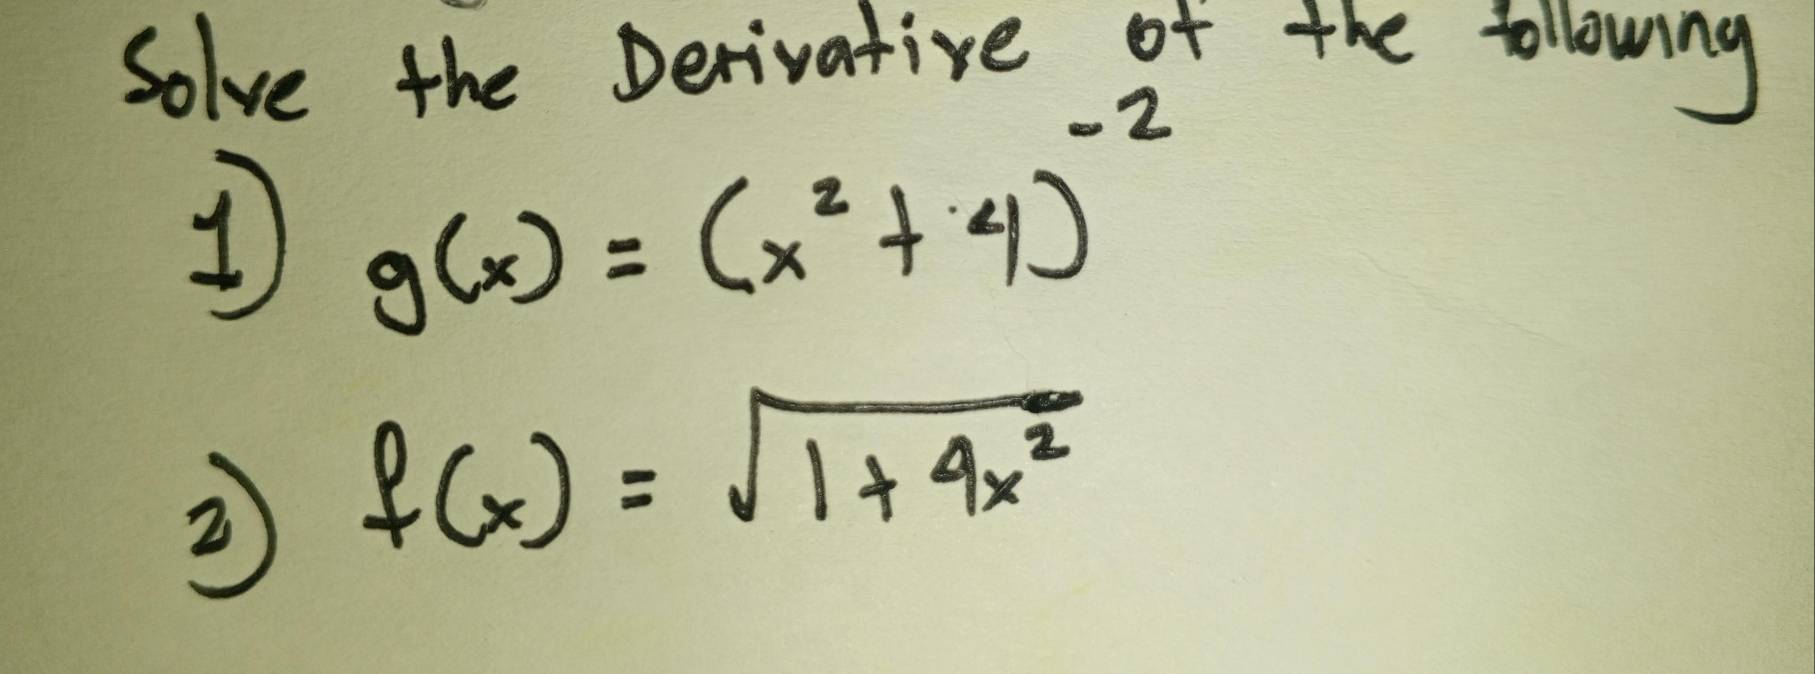 Solve the Derivative of the following
1) g(x) = (x² + 4)⁻²
2) f(x) = √1 + 4x²